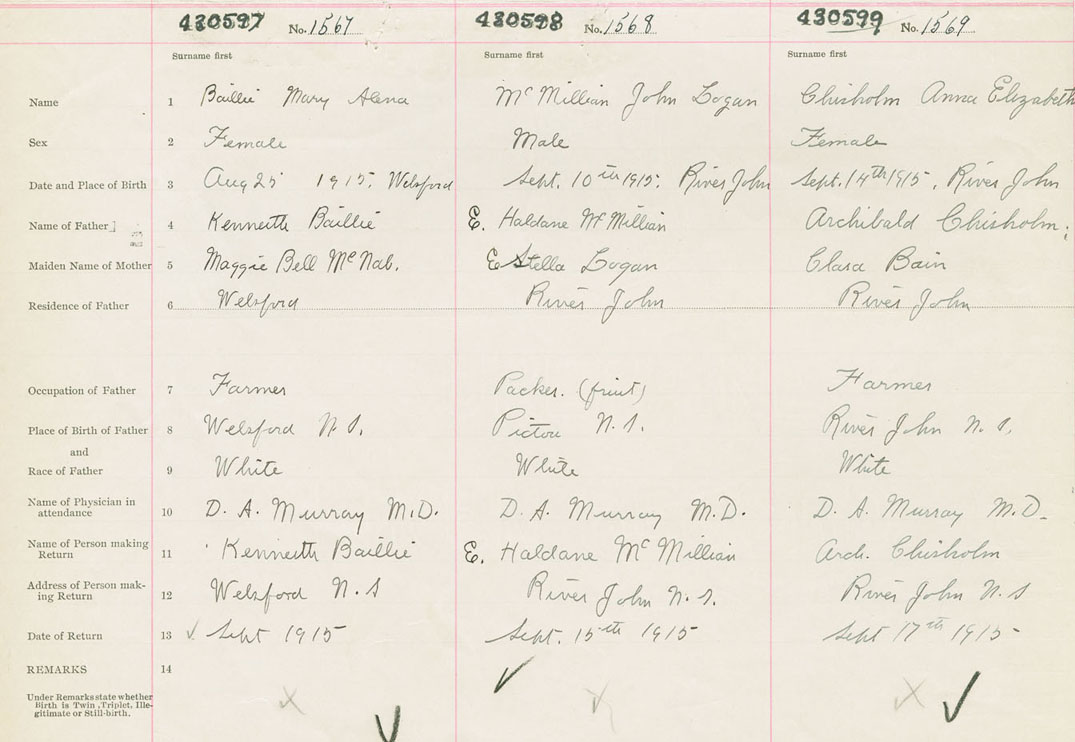 430597 No. 1567 430598 No. 1568 430599 No. 1569
Surname first Surname first Surname first
Name 1 Baillie Mary Alena Mc Millian John Logan Chisholm Anna Elizabeth
Sex 2 Female Male Female
Date and Place of Birth 3 Aug 25 1915. Welsford Sept. 10th 1915. River John Sept. 14th 1915, River John
Name of Father 4 Kenneth Baillie E. Haldane Mc Millian Archibald Chisholm.
Maiden Name of Mother 5 Maggie Bell McNab. Estella Logan Clara Bain
Residence of Father 6 Welsford River John River John
Occupation of Father 7 Farmer Packer. (fruit) Farmer
Place of Birth of Father 8 Welsford N.S. Pictou N.S. River John N.S.
and
Race of Father 9 White White White
Name of Physician in
attendance 10 D. A. Murray M.D. D. A. Murray M.D. D. A. Murray M.D.
Name of Person making
Return 11 Kenneth Baillie E. Haldane Mc Millian Arch. Chisholm
Address of Person mak-
ing Return 12 Welsford N.S River John N.S. River John N.S
Date of Return 13 Sept 1915 Sept. 15th 1915 Sept 17th 1915
REMARKS 14
Under Remarks state whether
Birth is Twin, Triplet, Ille-
gitimate or Still-birth.